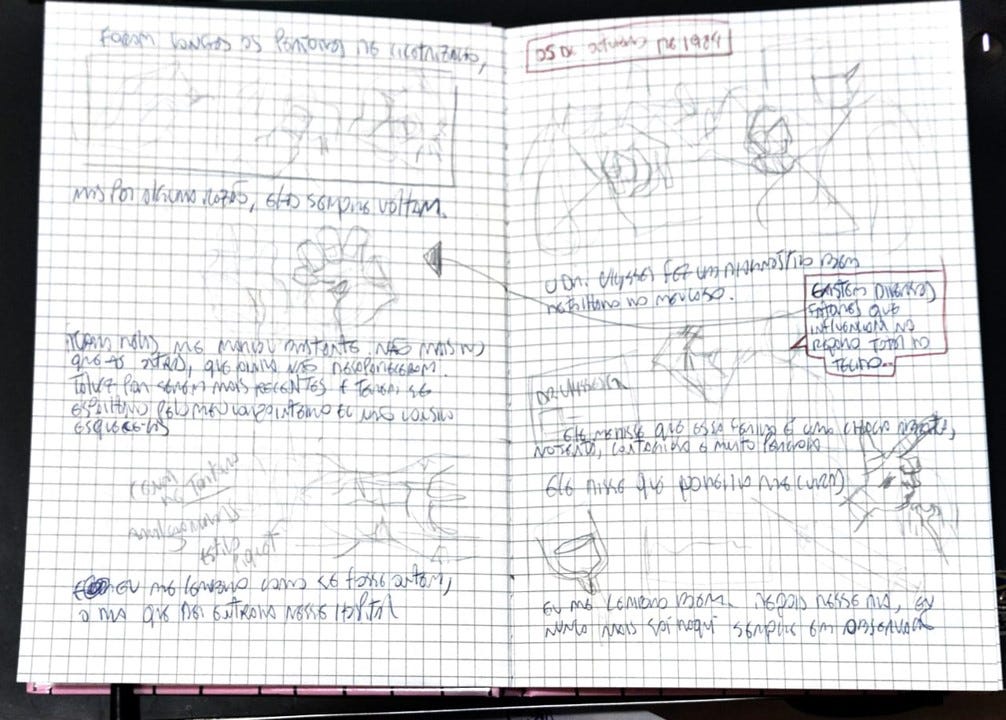 FORAM LONGOS OS PERÍODOS DE CICATRIZAÇÃO,
MAS POR ALGUMA RAZÃO, ELAS SEMPRE VOLTAM.
BASTANTE. NÃO MAIS DO
QUE AS OUTRAS, QUE AINDA NÃO DESAPARECERAM.
TALVEZ POR SEREM MAIS RECENTES E TEREM SE
ESPALHADO PELO MEU CORPO INTEIRO EU NÃO CONSIGO
ESQUECE-LAS
CENAS
DE TORTURA
ESTILO
EU ME LEMBRO COMO SE FOSSE ONTEM,
O DIA QUE DEI ENTRADA NESSE HOSPITAL
05 DE OUTUBRO DE 1984
O DR. ULYSSES FEZ UM DIAGNÓSTICO BEM
DETALHADO DO MEU CASO.
EXISTEM DIVERSOS
FATORES QUE
INFLUENCIAM NO
REPARO TOTAL DO
TECIDO...
DR. ULYSSES G
ELE ME DISSE QUE ESSA FERIDA É UMA CHAGA ABERTA,
NOJENTA, CONTAGIOSA E MUITO PERIGOSA
ELE DISSE QUE PODERIA ME CURAR
EU ME LEMBRO BEM. DEPOIS DESSE DIA, EU
NUNCA MAIS SAÍ DAQUI. SEMPRE EM OBSERVAÇÃO